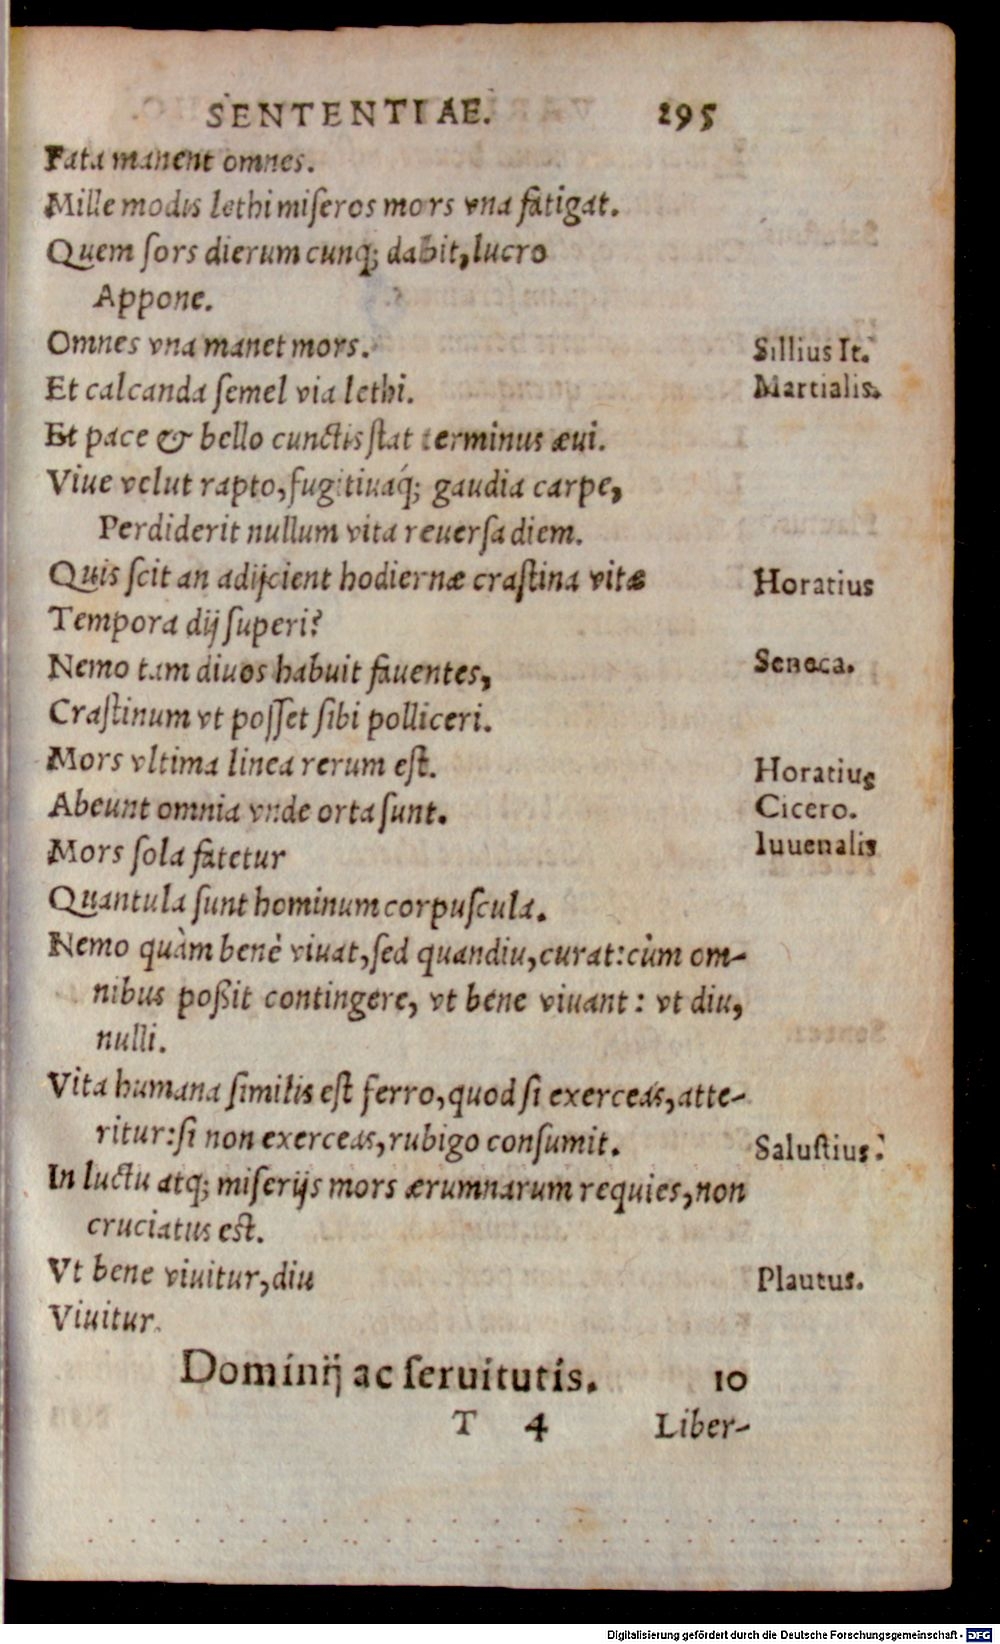 SENTENTIAE. 295
Fata manent omnes.
Mille modis lethi miſeros mors vna fatigat.
Quem ſors dierum cunq; dabit, lucro
Appone.
Omnes vna manet mors. Sillius It.
Et calcanda ſemel via lethi. Martialis.
Et pace & bello cunctis ſtat terminus æui.
Viue velut rapto, fugitiuaq́; gaudia carpe,
Perdiderit nullum vita reuerſa diem.
Quis ſcit an adijcient hodiernæ craſtina vitæ Horatius
Tempora dij ſuperi?
Nemo tam diuos habuit fauentes, Seneca.
Craſtinum vt poſſet ſibi polliceri.
Mors vltima linea rerum eſt. Horatius
Abeunt omnia vnde orta ſunt. Cicero.
Mors ſola fatetur Iuuenalis
Quantula ſunt hominum corpuſcula.
Nemo quàm benè viuat, ſed quandiu, curat: cùm om-
nibus poßit contingere, vt bene viuant: vt diu,
nulli.
Vita humana ſimilis eſt ferro, quod ſi exerceas, atte-
ritur: ſi non exerceas, rubigo conſumit. Saluſtius.
In luctu atq; miſerijs mors ærumnarum requies, non
cruciatus eſt.
Vt bene viuitur, diu Plautus.
Viuitur.
Dominij ac ſeruitutis. 10
T 4 Liber-
Digitalisierung gefördert durch die Deutsche Forschungsgemeinschaft - DFG